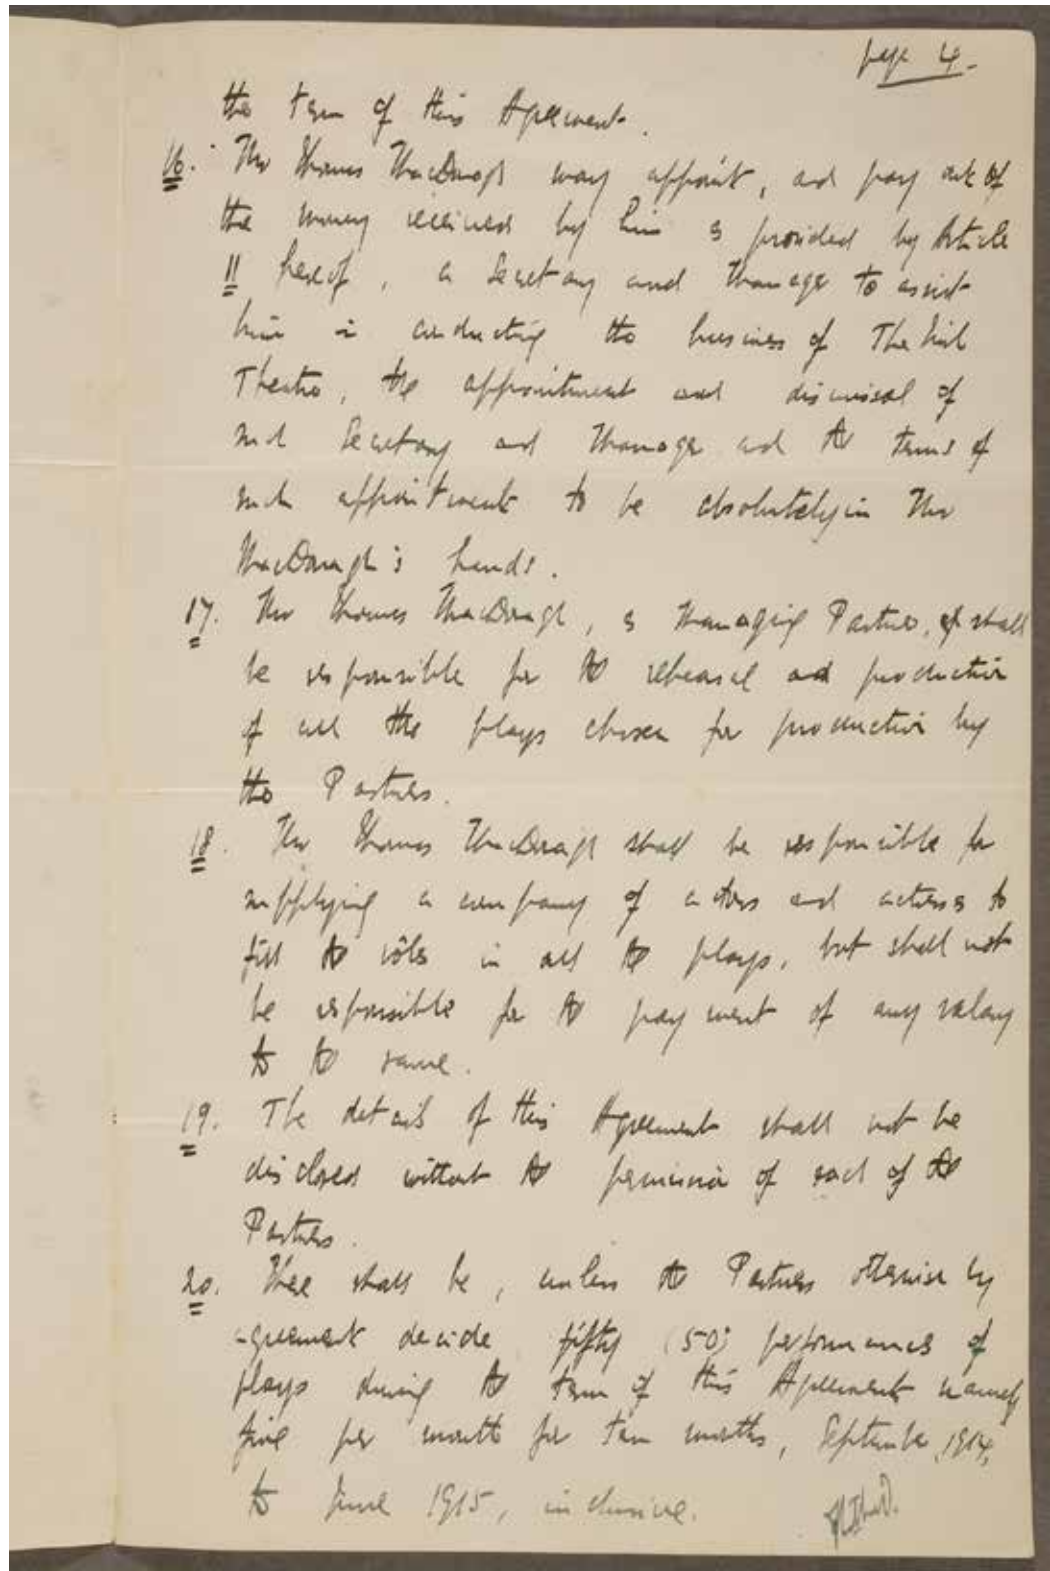 page 4.
the term of this Agreement.
16. Mr Thomas MacDonagh may appoint, and pay out of
the money received by him as provided by Article
11 hereof, a Secretary and Manager to assist
him in conducting the business of The Irish
Theatre, the appointment and dismissal of
such Secretary and Manager and the terms of
such appointments to be absolutely in Mr
MacDonagh's hands.
17. Mr Thomas MacDonagh, as Managing Partner, shall
be responsible for the rehearsal and production
of all the plays chosen for production by
the Partners.
18. Mr Thomas MacDonagh shall be responsible for
supplying a company of actors and actresses to
fill the rôles in all the plays, but shall not
be responsible for the payment of any salary
to the same.
19. The details of this Agreement shall not be
disclosed without the permission of each of the
Partners.
20. There shall be, unless the Partners otherwise by
agreement decide fifty (50) performances of
plays during the term of this Agreement namely
five per month for ten months, September, 1914,
to June 1915, inclusive.